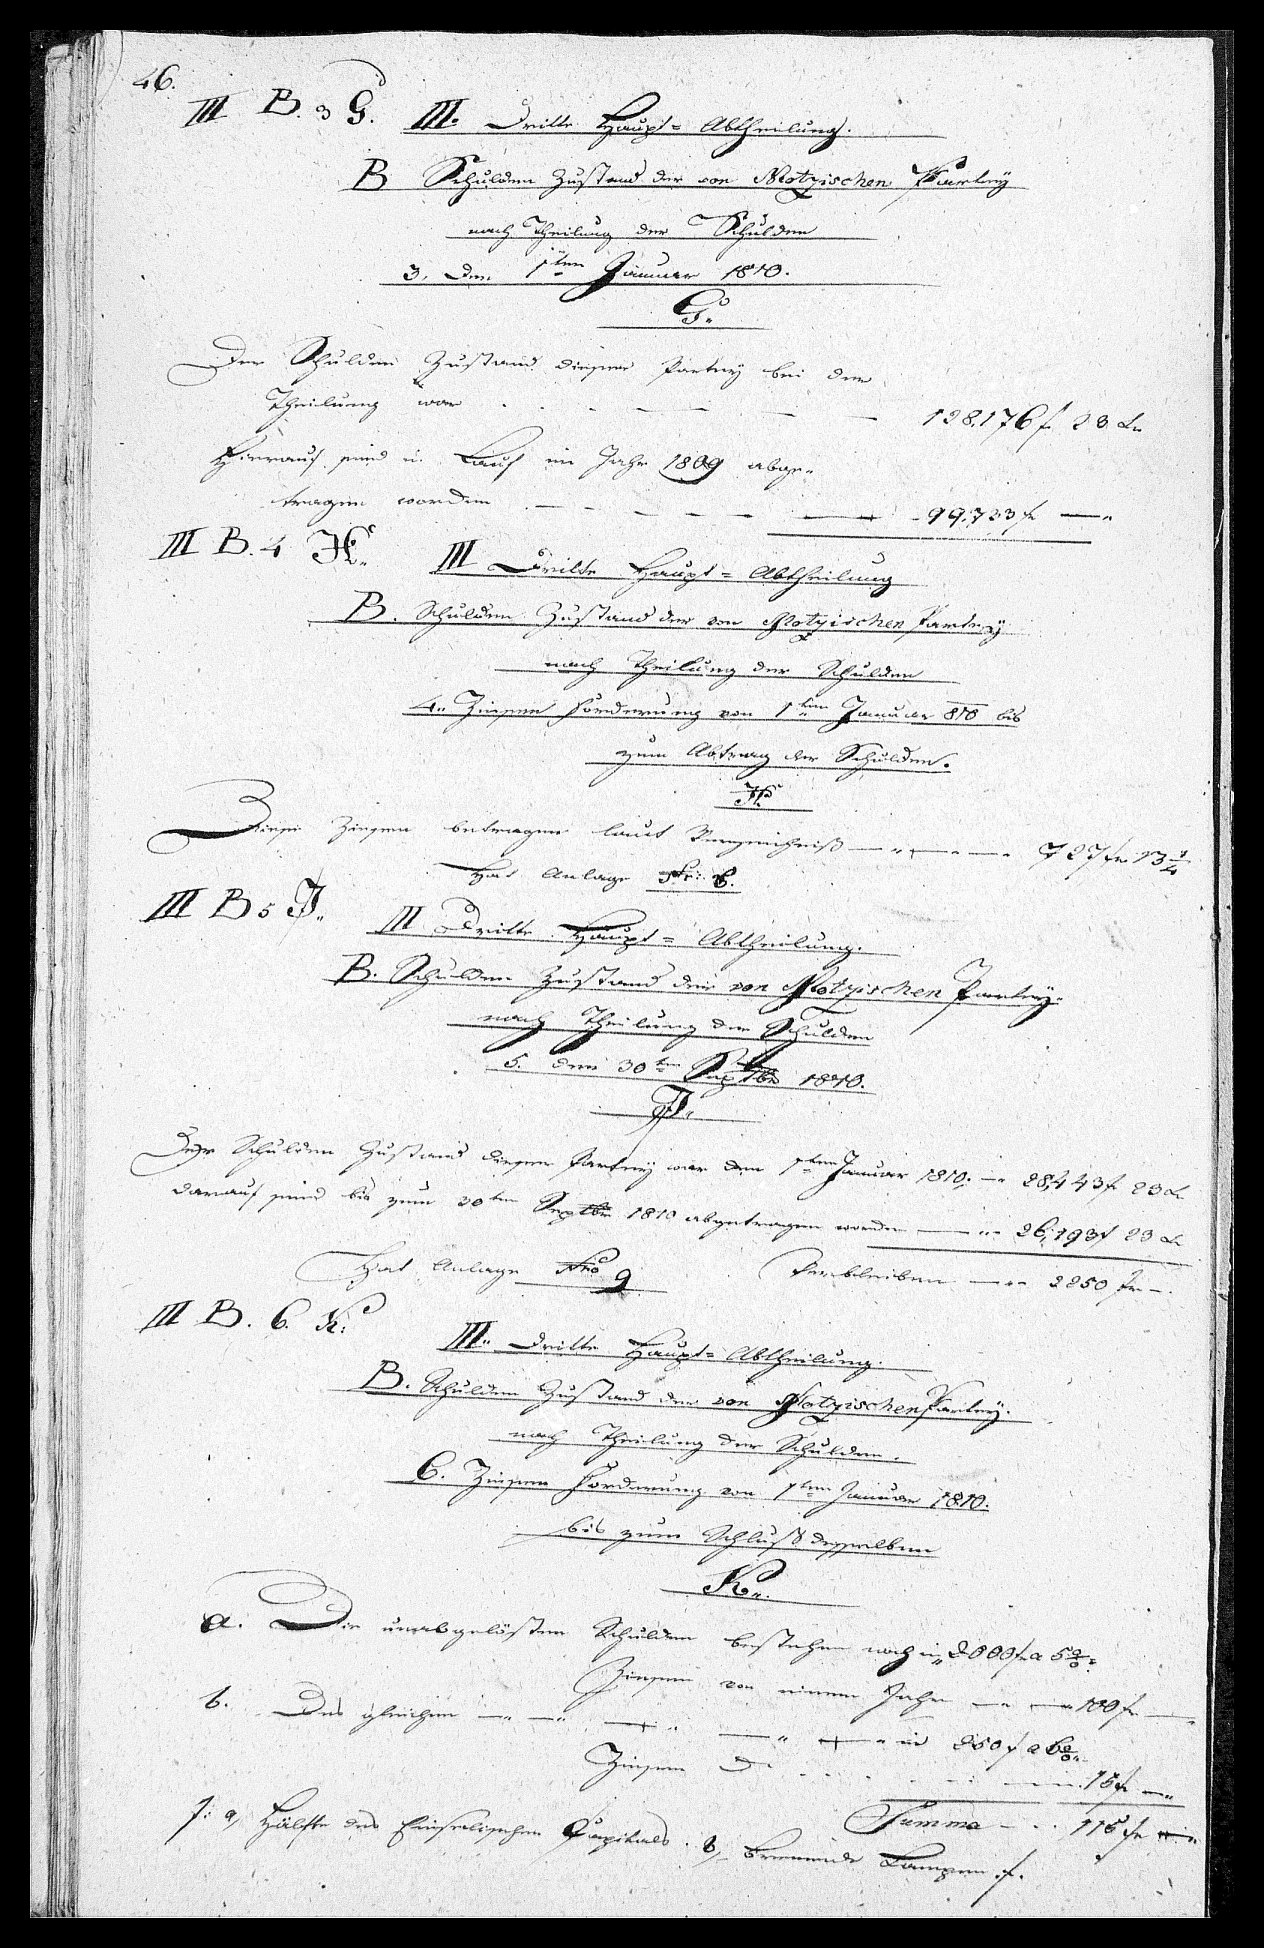 46.
III B. 3 G. III. Dritte Haupt= Abtheilung.
B Schulden Zustand der von Motzischen Partey
nach Theilung der Schulden
3. Den 1ten Januar 1810.
G.
Der Schulden Zustand dieser Partey bei der
Theilung war . . . — — — — — 128,176 f 23 Xr
Hierauf sind im Lauf im Jahr 1809 abge-
tragen worden . — — — — — — 99,733 f —
III B. 4 H. III Dritte Haupt= Abtheilung
B. Schulden Zustand der von Motzischen Partey
nach Theilung der Schulden
4. Zinsen Forderung von 1ten Januar 810 bis
zum Abtrag der Schulden.
H.
Diese Zinsen betragen laut Verzeichniß — — — 727 fr 13 1/4
Hat Anlage Nr: 8.
III B 5 J. III Dritte Haupt= Abtheilung.
B. Schulden Zustand der von Motzischen Partey.
nach Theilung der Schulden
5. den 30ten Septbr 1810.
J.
Der Schulden Zustand dieser Partey war den 1ten Januar 1810. — 28,443 f 23 Xr
darauf sind bis zum 30ten Septbr 1810 abgetragen worden — 26,193 f 23 Xr
Hat Anlage Nro 9 Verbleiben — 2250 fr —.
III B. 6. K. III. Dritte Haupt= Abtheilung.
B. Schulden Zustand der von Motzischen Partey.
nach Theilung der Schulden.
6. Zinsen Forderung von 1ten Januar 1810.
bis zum Schluß desselben
K.
a. Die unabgelösten Schulden bestehen noch in 2000 fr a 5 %
Zinsen von einem Jahr — — 100 fr —
b. Des gleichen — — — — — in 250 f a 6 %
Zinsen D . . . . . — 15 fr —
Summa — . . 115 fr —
f: a, Hälfte des Capitals. b, Gemeinde Kampen .f.